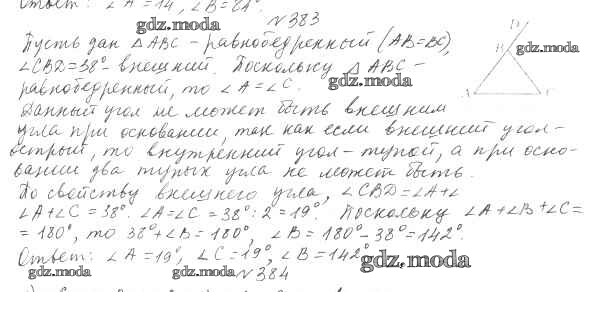 Ответ: ∠A = 14°, ∠B = 84°.
gdz.moda
№383
Пусть дан △ABC – равнобедренный (AB=BC),
∠CBD=38° – внешний. Поскольку △ABC –
равнобедренный, то ∠A=∠C.
gdz.moda
gdz.moda
D
B
A
C
Данный угол не может быть внешним
угла при основании, так как если внешний угол –
острый, то внутренний угол – тупой, а при осно-
вании два тупых угла не может быть.
По свойству внешнего угла, ∠CBD=∠A+∠
∠A+∠C=38°. ∠A=∠C=38°:2=19°. Поскольку ∠A+∠B+∠C=
= 180°, то 38°+∠B=180°, ∠B=180°-38°=142°.
Ответ: ∠A=19°, ∠C=19°, ∠B=142°.
gdz.moda
gdz.moda
gdz.moda
№384